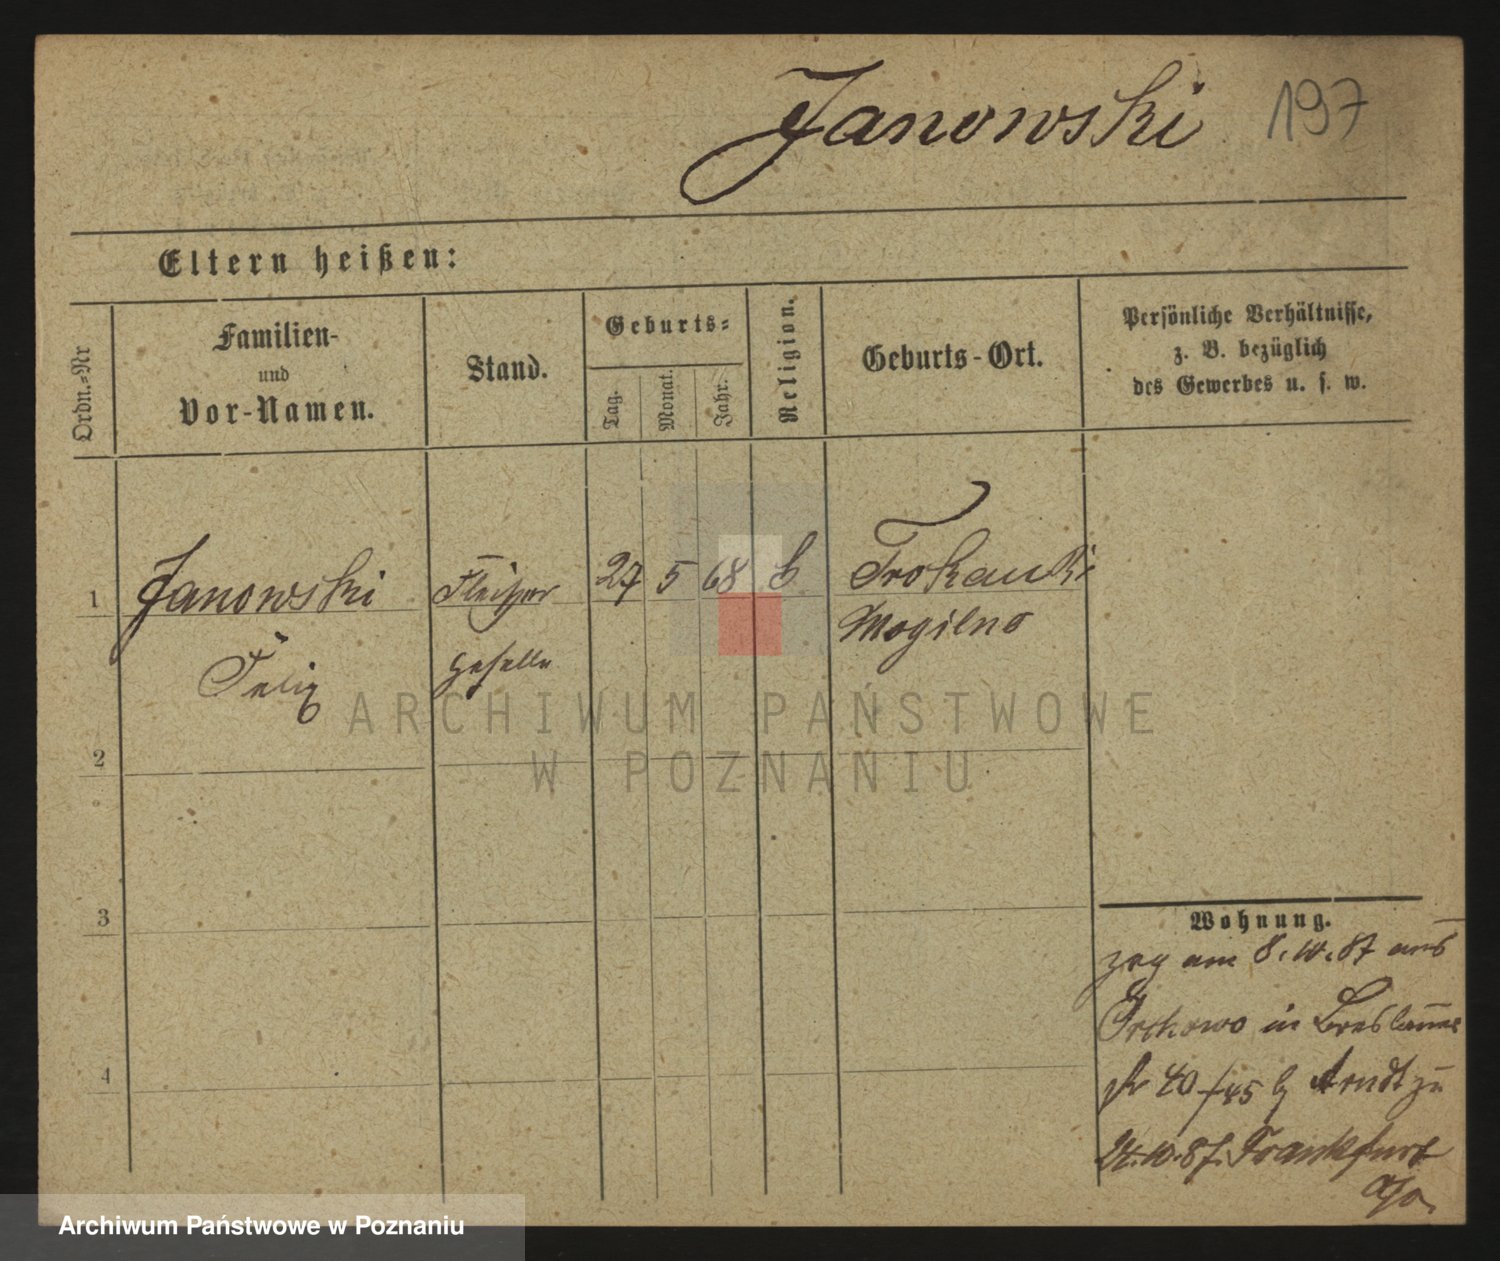 Janowski 197
Eltern heißen:
Ordn.-Nr
Familien-
und
Vor-Namen.
Stand.
Geburts-
Tag.
Monat.
Jahr.
Religion.
Geburts-Ort.
Persönliche Verhältnisse,
z. B. bezüglich
des Gewerbes u. s. w.
1 Janowski Fleischer 27 5 68 k
Felix geselle Mogilno
2
3
4
Wohnung.
zog am 8.10.87 aus
Orchowo in Breslauer
str 40/45 b Arndt zu
24.10.87. Frankfurt
a/o.
ARCHIWUM PAŃSTWOWE
W POZNANIU
Archiwum Państwowe w Poznaniu